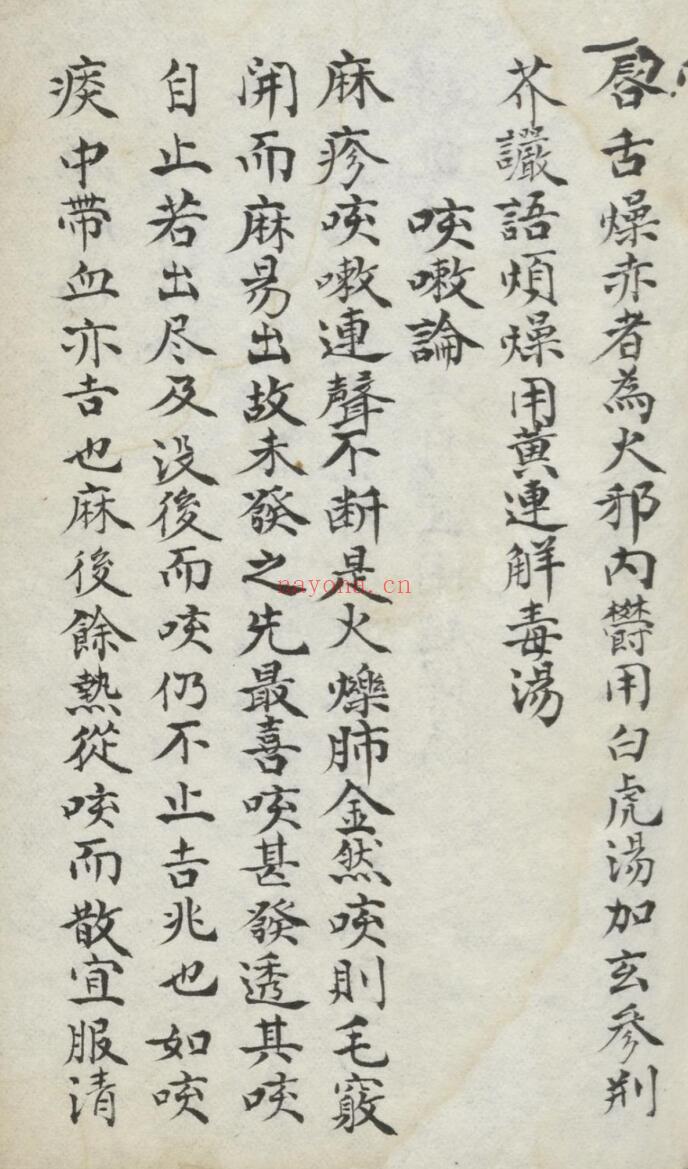 唇舌燥赤者為火邪内欝用白虎湯加玄參荆
芥讝語煩燥用黃連解毒湯
咳嗽論
麻疹咳嗽連聲不断是火爍肺金然咳則毛竅
開而麻易出故未發之先最喜咳甚發透其咳
自止若出尽及没後而咳仍不止吉兆也如咳
痰中帶血亦吉也麻後餘熱從咳而散宜服清
nayona.cn